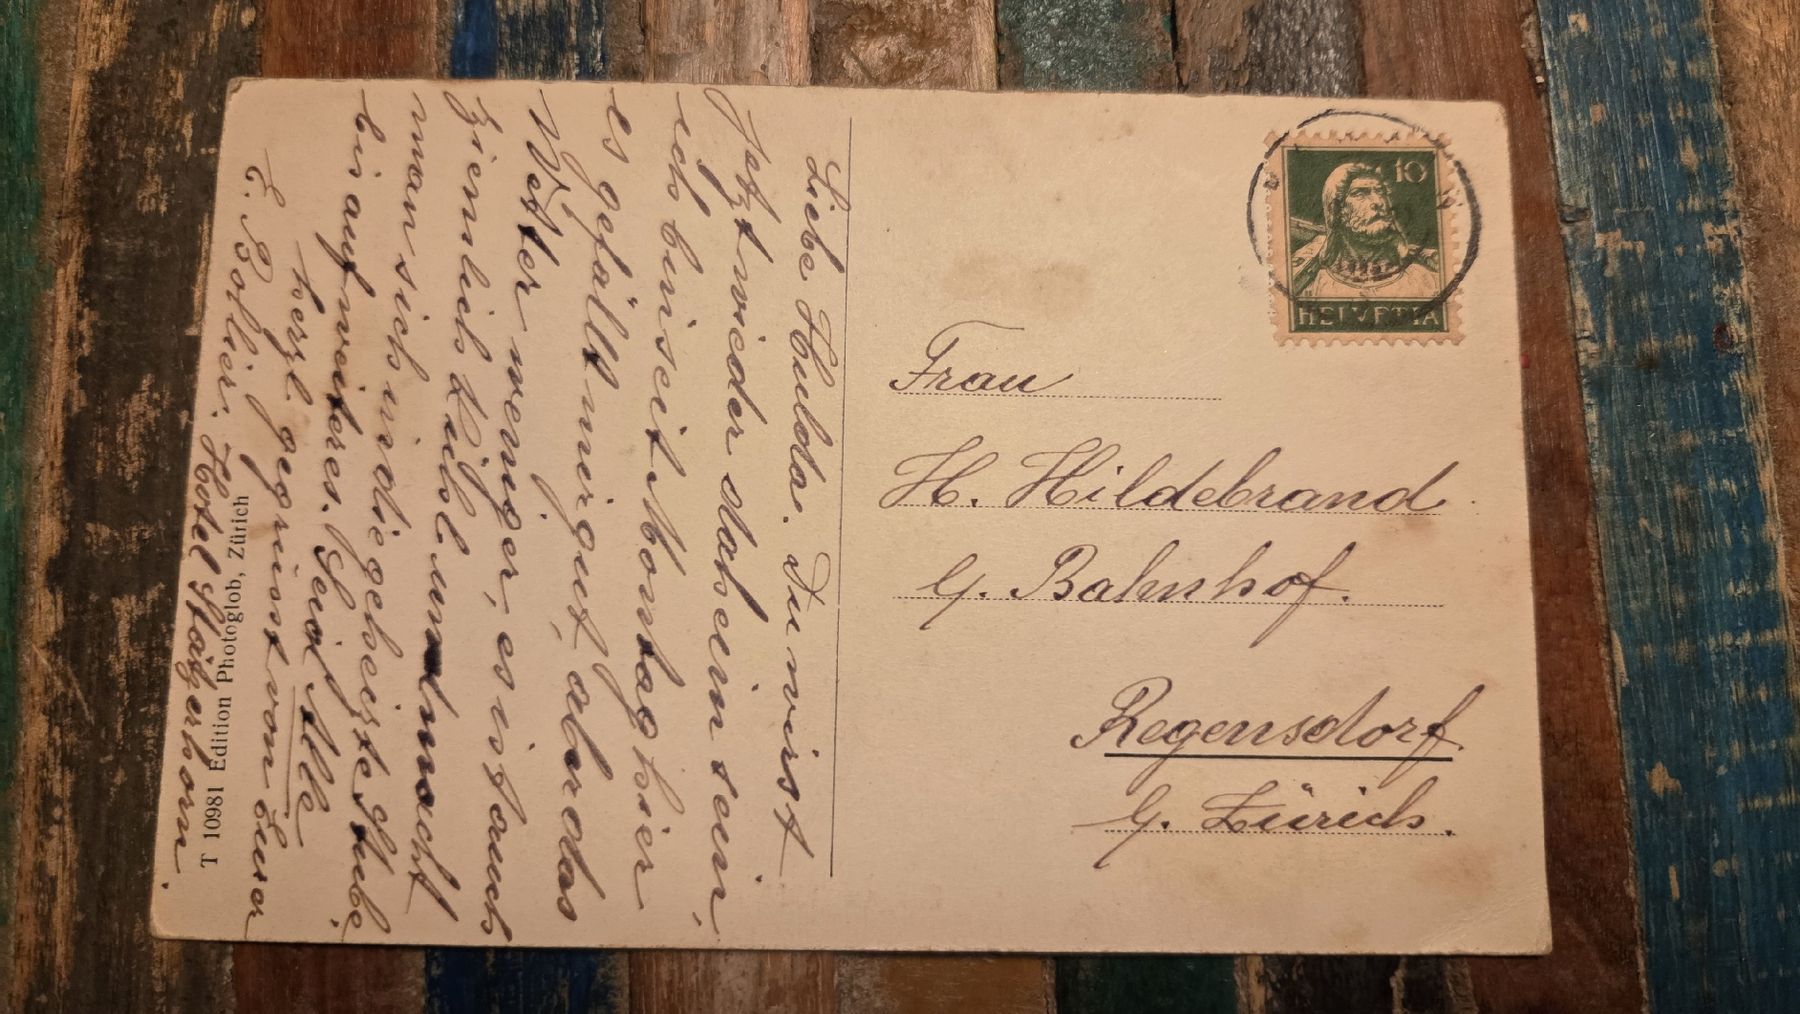 Liebe Hulda. Du wirst
Jetzt wieder daheim sein,
ich bin seit Montag hier
es gefällt mir gut, aber das
Wetter weniger, es ist auch
ziemlich kühl. und macht
man sich in die geheizte Stube,
bis auf weiteres. Seid Alle
herzl. gegrüsst von Euer
E. Bollier. Hotel Stätzerhorn.
T 10981 Edition Photoglob, Zürich
10
HELVETIA
Frau
H. Hildebrand
g. Bahnhof.
Regensdorf.
g. Zürich.